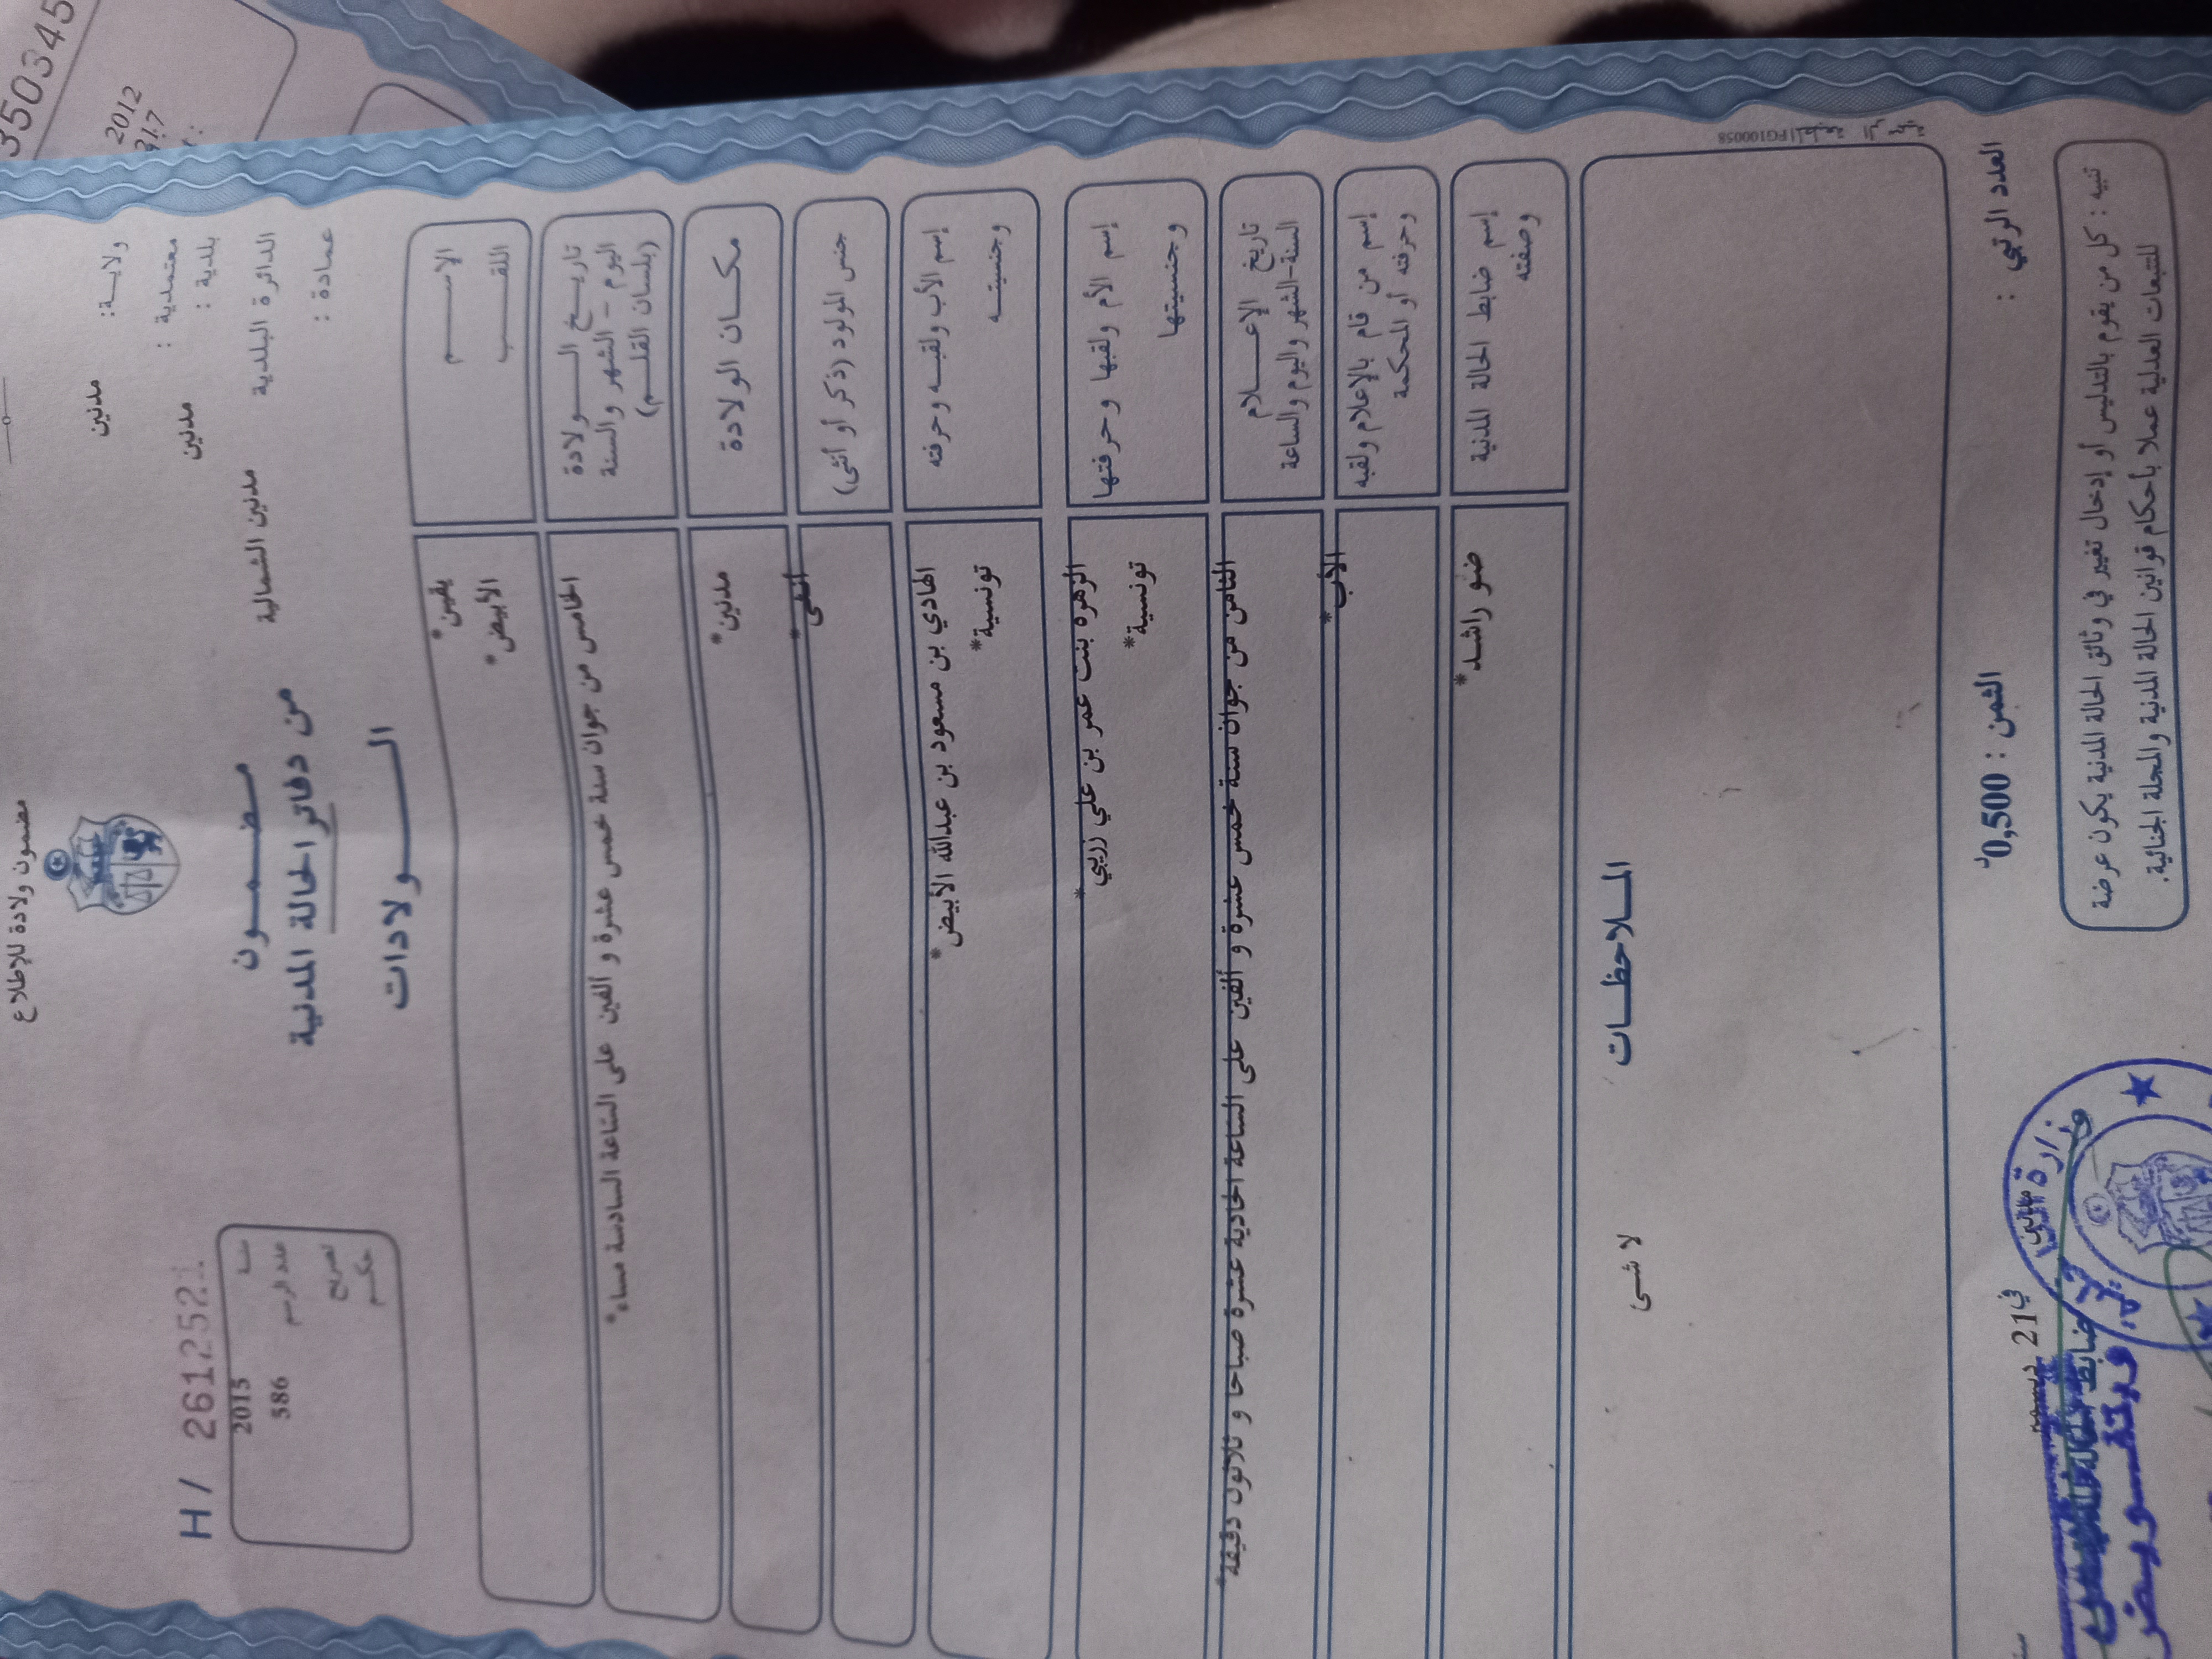 35503345
2012
91.7
مضمون ولادة للإطلاع
ولايـة: مدنين
معتمدية : مدنين
بلدية :
الدائرة البلدية مدنين الشمالية
عمادة :
مضمـــون
من دفاتر الحالة المدنية
الـــــولادات
H / 261252
سنة 2015
عدد الرسم 586
تصريح
حكم
الإســـــم يقين*
اللقـــب الأبيض*
تاريـــخ الـــــولادة
اليوم - الشهر والسنة
(بلسان القلـــم)
الخامس من جوان سنة خمس عشرة و ألفين على الساعة السادسة مساء*
مكـــان الولادة مدنين*
جنس المولود (ذكر أو أنثى) أنثى*
إسم الأب ولقبـه وحرفته الهادي بن مسعود بن عبدالله الأبيض*
وجنسيتـــه تونسية*
إسم الأم ولقبها وحرفتها الزهرة بنت عمر بن علي زريبي*
وجنسيتها تونسية*
تاريخ الإعـــــلام
السنة-الشهر واليوم والساعة
الثامن من جوان سنة خمس عشرة و ألفين على الساعة الحادية عشرة صباحا و ثلاثون دقيقة*
إسم من قام بالإعلام ولقبه
وحرفته أو المحكمة
الأب*
إسم ضابط الحالة المدنية
وصفته
ضو راشد*
الملاحظـــات
لا شئ
العدد الرتبي :
الثمن : 0,500د
في 21 ديسمبر
تنبيه : كل من يقوم بالتدليس أو إدخال تغيير في وثائق الحالة المدنية يكون عرضة
للتتبعات العدلية عملا بأحكام قوانين الحالة المدنية والمجلة الجنائية.
وزارة
ضابط